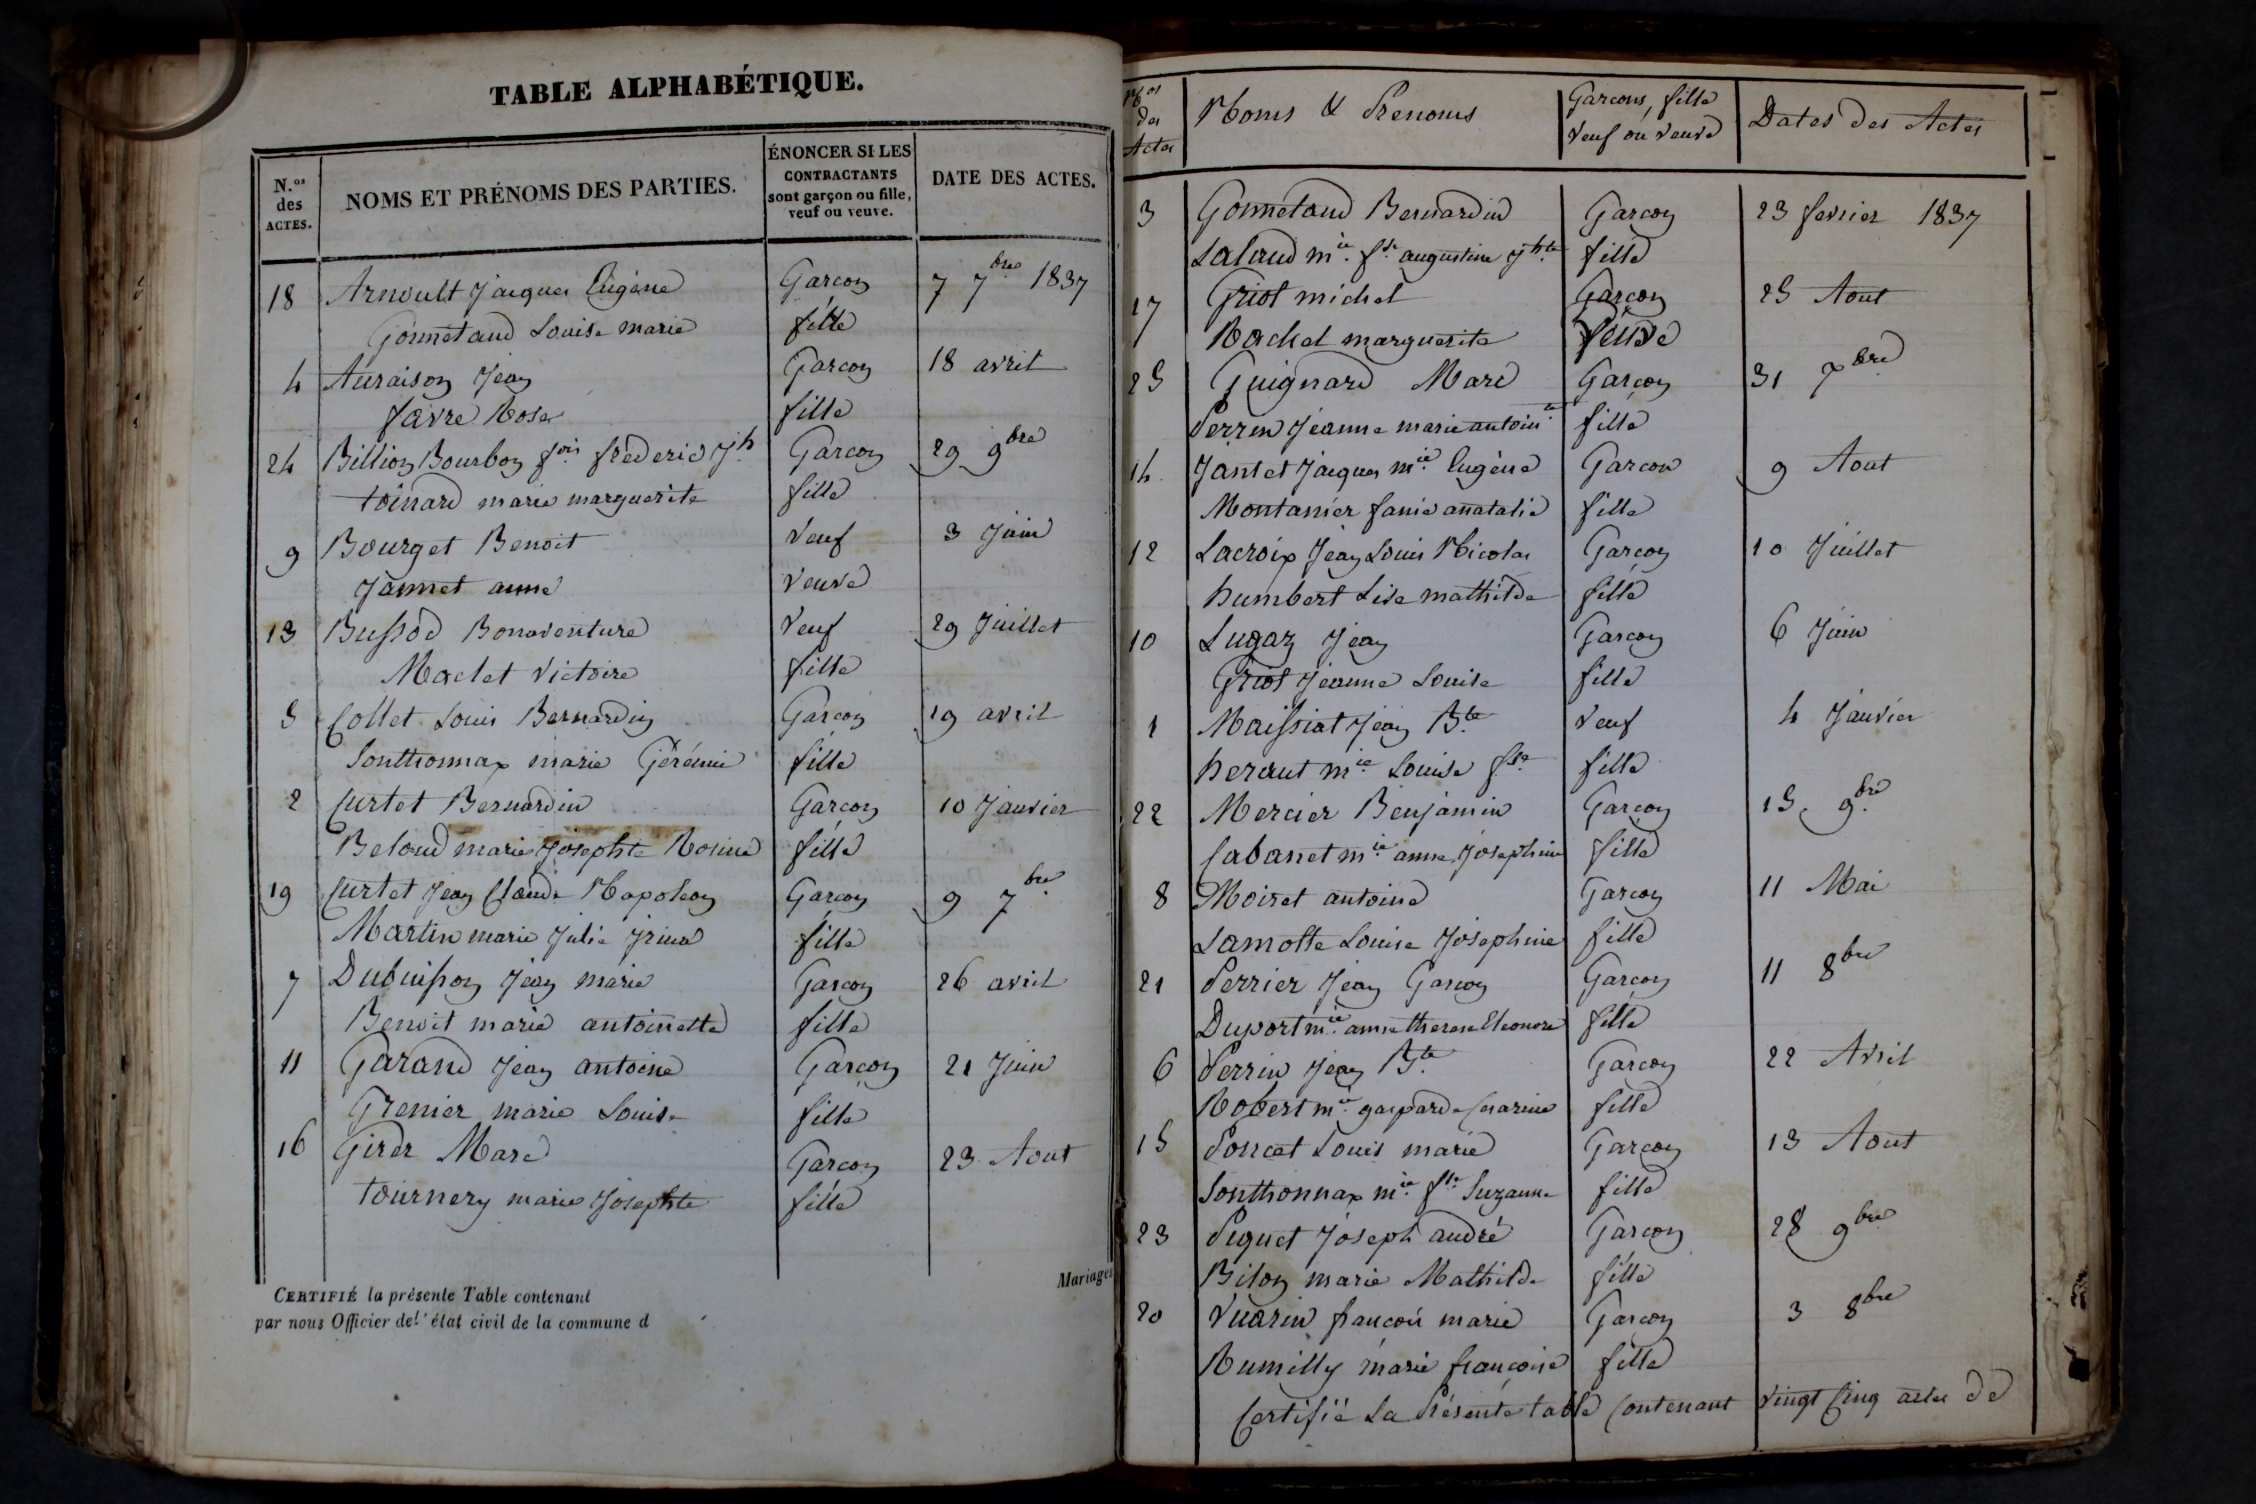 TABLE ALPHABÉTIQUE.
N.os des ACTES. NOMS ET PRÉNOMS DES PARTIES. ÉNONCER SI LES CONTRACTANTS sont garçon ou fille, veuf ou veuve. DATE DES ACTES.
18 Arnoult Jacques Eugène Garcon 7 7bre 1837
Gonnetaud Louise marie fille
4 Auraison Jean Garcon 18 avril
favre Rose fille
24 Billion Bourbon fois frederic Jh Garcon 29 9bre
toinard marie marguerite fille
9 Bourget Benoit Veuf 3 Juin
Jannet anne Veuve
13 Bussod Bonaventure Veuf 29 Juillet
Maclet Victoire fille
5 Collet Louis Bernardin Garcon 19 avril
Sonthonnax marie Gérémie fille
2 Curtet Bernardin Garcon 10 Janvier
Beloud marie Josephte Rosine fille
19 Curtet Jean Claude Napoleon Garcon 9 7bre
Martin marie Julie Irma fille
7 Dubuisson Jean marie Garcon 26 avril
Benoit marie antoinette fille
11 Garand Jean antoine Garcon 21 Juin
Grenier marie Louise fille
16 Girer Marc Garcon 23 Aout
tournery marie Josephte fille
Mariages
CERTIFIÉ la présente Table contenant
par nous Officier de l'état civil de la commune d
Nos des Actes Noms & Prenoms Garcons, fille Veuf ou Veuve Dates des Actes
3 Gonnetaud Bernardin Garcon 23 fevrier 1837
Lalaud mie fse augustine Jhte fille
17 Griot michel Garcon 25 Aout
Rachel marguerite Veuve
25 Guignard Marc Garcon 31 Xbre
Perrin Jeanne marie antointe fille
14 Jantet Jacques mie Eugène Garcon 9 Aout
Montanier fanie anatalie fille
12 Lacroix Jean Louis Nicolas Garcon 10 Juillet
humbert Lise mathilde fille
10 Lugaz Jean Garcon 6 Juin
Griot Jeanne Louise fille
1 Maissiat Jean Bte Veuf 4 Janvier
heraut mie Louise fse fille
22 Mercier Benjamin Garcon 15 9bre
Cabanet mie anne Josephine fille
8 Moiret antoine Garcon 11 Mai
Lamotte Louise Josephine fille
21 Perrier Jean Garcon Garcon 11 8bre
Duport mie anne therese Eleonore fille
6 Perrin Jean Bte Garcon 22 Avril
Robert mie gasparde Cesarine fille
15 Poncet Louis marie Garcon 13 Aout
Sonthonnax mie fse Suzanne fille
23 Piquet Joseph andré Garcon 28 9bre
Bilon marie Mathilde fille
20 Vuarin francois marie Garcon 3 8bre
Rumilly marie françoise fille
Certifié La Présente table Contenant Vingt Cinq actes de